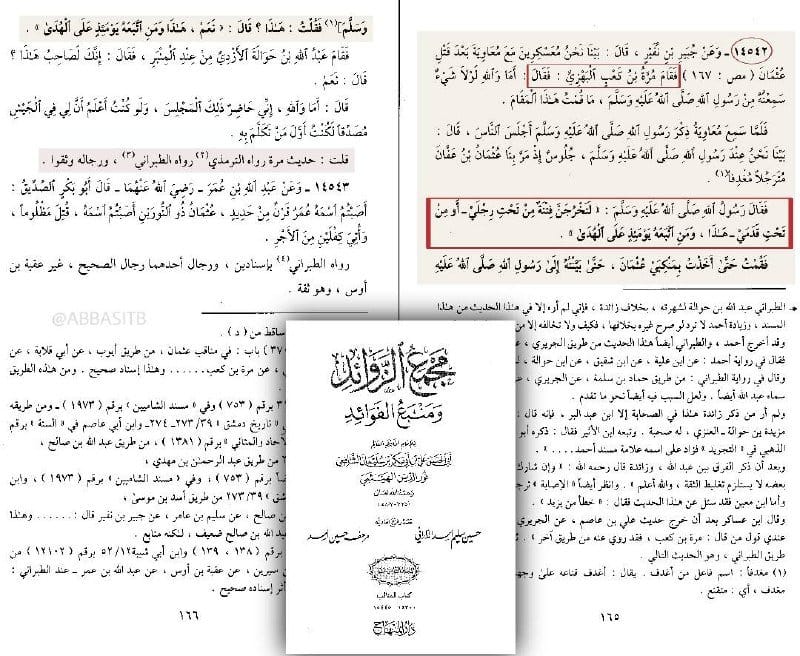 ١٤٥٤٢ - وَعَنْ جُبَيْرِ بْنِ نُفَيْرٍ ، قَالَ : بَيْنَا نَحْنُ مُعَسْكِرِينَ مَعَ مُعَاوِيَةَ بَعْدَ قَتْلِ
عُثْمَانَ ( مص : ١٦٧ ) فَقَامَ مُرَّةُ بْنُ كَعْبٍ الْبَهْزِيُّ : فَقَالَ : أَمَا وَاللهِ لَوْلاَ شَيْءٌ
سَمِعْتُهُ مِنْ رَسُولِ اللهِ صَلَّى اللهُ عَلَيْهِ وَسَلَّمَ ، مَا قُمْتُ هَـٰذَا الْمَقَامَ .
فَلَمَّا سَمِعَ مُعَاوِيَةُ ذِكْرَ رَسُولِ اللهِ صَلَّى اللهُ عَلَيْهِ وَسَلَّمَ أَجْلَسَ النَّاسَ ، قَالَ :
بَيْنَا نَحْنُ عِنْدَ رَسُولِ اللهِ صَلَّى اللهُ عَلَيْهِ وَسَلَّمَ ، جُلُوسٌ إِذْ مَرَّ بِنَا عُثْمَانُ بْنُ عَفَّانَ
مُتَرَجِّلاً مُغْدِفاً(١) .
فَقَالَ رَسُولُ اللهِ صَلَّى اللهُ عَلَيْهِ وَسَلَّمَ : « لَتَخْرُجَنَّ فِتْنَةٌ مِنْ تَحْتِ رِجْلَيَّ - أَوْ مِنْ
تَحْتِ قَدَمَيَّ - هَـٰذَا ، وَمَنِ اتَّبَعَهُ يَوْمَئِذٍ عَلَى الْهُدَىٰ » .
فَقُمْتُ حَتَّىٰ أَخَذْتُ بِمَنْكِبَيْ عُثْمَانَ ، حَتَّىٰ بَيَّنْتُهُ إِلَىٰ رَسُولِ اللهِ صَلَّى اللهُ عَلَيْهِ
الطبراني عبد الله بن حوالة لشهرته ، بخلاف زائدة ، فإني لم أره إلا في هذا الحديث من هذا
المسند ، وزيادة أحمد لا ترد لو صرح غيره بخلافها ، فكيف ولا تخالفه إلا من
وقد أخرج أحمد ، والطبراني أيضاً هذا الحديث من طريق
فقال في رواية أحمد : عن ابن علية ، عن ابن شقيق ، عن ابن حوالة ،
وقال في رواية الطبراني : من طريق حماد بن سلمة ، عن الجريري ،
سماه عبد الله أيضاً . ولعل السبب فيه أيضاً نحو ما تقدم .
ولم أر من ذكر زائدة هذا في الصحابة إلا ابن عبد البر ، فإنه قال :
مزيدة بن حوالة - العنزي ، له صحبة . وتبعه ابن الأثير فقال : ذكره أبو
الذهبي في « التجريد » فزاد على اسمه علامة مسند أحمد . . . »
وبعد أن ذكر الفرق بين عبد الله ، وزائدة قال رحمه الله : « وإن شارك
بعضه لا يستلزم تغليط الثقة ، والله أعلم » . وانظر أيضاً « الإصابة »
وأما ابن معين فقد سئل عن هذا الحديث فقال : « خطأ من يزيد » .
وقال ابن عساكر بعد أن خرج حديث علي بن عاصم ، عن الجريري
عندي قول من قال : مرة بن كعب ، فقد روي عنه من طريق آخر » .
طريق الطبراني ، وهو الحديث التالي .
(١) مغدفاً : اسم فاعل من أغدف . يقال : أغدف قناعه على وجهه
مغدف ، أي : متقنع .
١٦٥
وَسَلَّمَ](١) فَقُلْتُ : هَـٰذَا ؟ قَالَ : « نَعَمْ ، هَـٰذَا وَمَنِ اتَّبَعَهُ يَوْمَئِذٍ عَلَى الْهُدَىٰ » .
فَقَامَ عَبْدُ اللهِ بْنُ حَوَالَةَ الأَزْدِيُّ مِنْ عِنْدِ الْمِنْبَرِ ، فَقَالَ : إِنَّكَ لَصَاحِبُ هَـٰذَا ؟
قَالَ : نَعَمْ .
قَالَ : أَمَا وَاللهِ ، إِنِّي حَاضِرٌ ذَلِكَ الْمَجْلِسَ ، وَلَوْ كُنْتُ أَعْلَمُ أَنَّ لِي فِي الْجَيْشِ
مُصَدِّقاً لَكُنْتُ أَوَّلَ مَنْ تَكَلَّمَ بِهِ .
قلت : حديث مرة رواه الترمذي(٢) رواه الطبراني(٣) ، ورجاله وثقوا .
١٤٥٤٣ - وَعَنْ عَبْدِ اللهِ بْنِ عُمَرَ - رَضِيَ اللهُ عَنْهُمَا - قَالَ أَبُو بَكْرٍ الصِّدِّيقُ :
أَصَبْتُمُ اسْمَهُ عُمَرُ قَرْنٌ مِنْ حَدِيدٍ ، عُثْمَانُ ذُو النُّورَيْنِ أَصَبْتُمُ اسْمَهُ ، قُتِلَ مَظْلُوماً ،
وَأُوتِيَ كِفْلَيْنِ مِنَ الأَجْرِ .
رواه الطبراني(٤) بإسنادين ، ورجال أحدهما رجال الصحيح ، غير عقبة بن
أوس ، وهو ثقة .
@ABBASITB
ساقط من ( د ) .
) باب : في مناقب عثمان ، من طريق أيوب ، عن أبي قلابة ، عن
، عن مرة بن كعب . . . . . . وهذا إسناد صحيح . ومن هذه الطريق
برقم ( ٧٥٣ ) وفي « مسند الشاميين » برقم ( ١٩٧٣ ) - ومن طريقه
« تاريخ دمشق » ٢٧٣/٣٩-٢٧٤- وابن أبي عاصم في « السنة » برقم
لآحاد والمثاني » برقم ( ١٣٨١ ) ، من طريق عبد الله بن صالح ،
من طريق عبد الرحمٰن بن مهدي ،
أيضاً برقم ( ٧٥٣ ) ، وفي « مسند الشاميين » برقم ( ١٩٧٣ ) ، وابن
٢٧٣/٣٩ من طريق أسد بن موسىٰ ،
بن صالح ، عن سليم بن عامر ، عن جبير بن نفير قال : . . . . . . وهذا
بد الله بن صالح ضعيف ، لكنه متابع .
برقم ( ١٣٨ ، ١٣٩ ) وابن أبي شيبة ٥٢/١٢ برقم ( ١٢١٠٢ ) من
ن سيرين ، عن عقبة بن أوس ، عن عبد الله بن عمر - عند الطبراني :
أثر إسناده صحيح .
١٦٦
مَجْمَعُ الزَّوَائِدِ
وَمَنْبَعُ الفَوَائِدِ
نور الدين الهيثمي
حسين سليم أسد الداراني
مرهف حسين أسد
كتاب المناقب
دار المنهاج